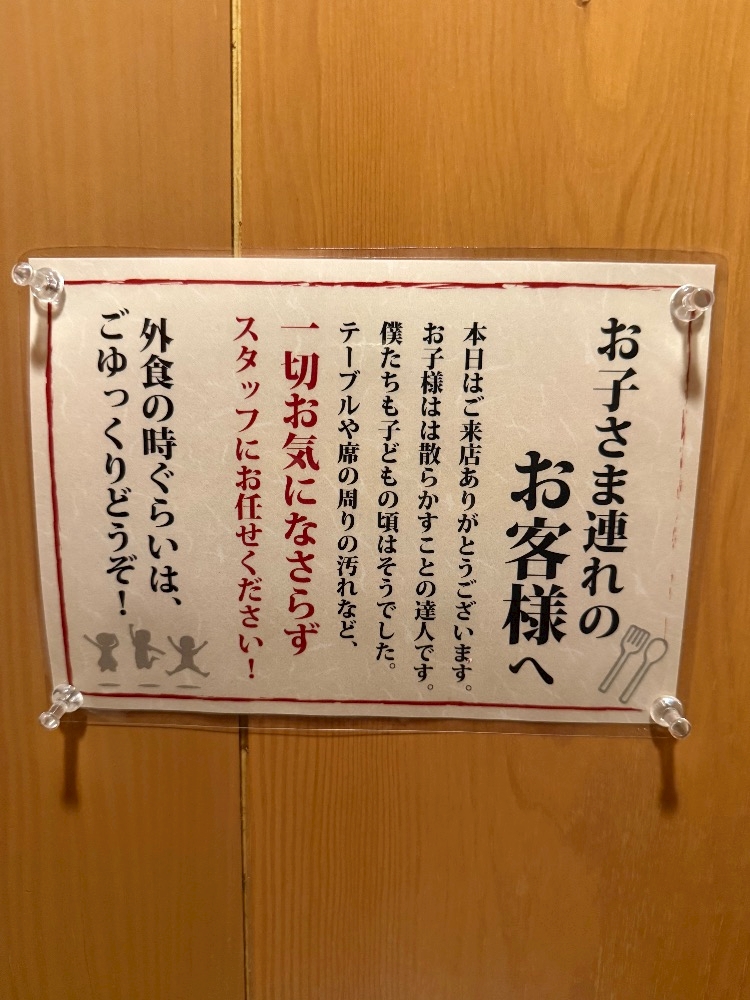 お子さま連れの
お客様へ
本日はご来店ありがとうございます。
お子様はは散らかすことの達人です。
僕たちも子どもの頃はそうでした。
テーブルや席の周りの汚れなど、
一切お気になさらず
スタッフにお任せください！
外食の時ぐらいは、
ごゆっくりどうぞ！